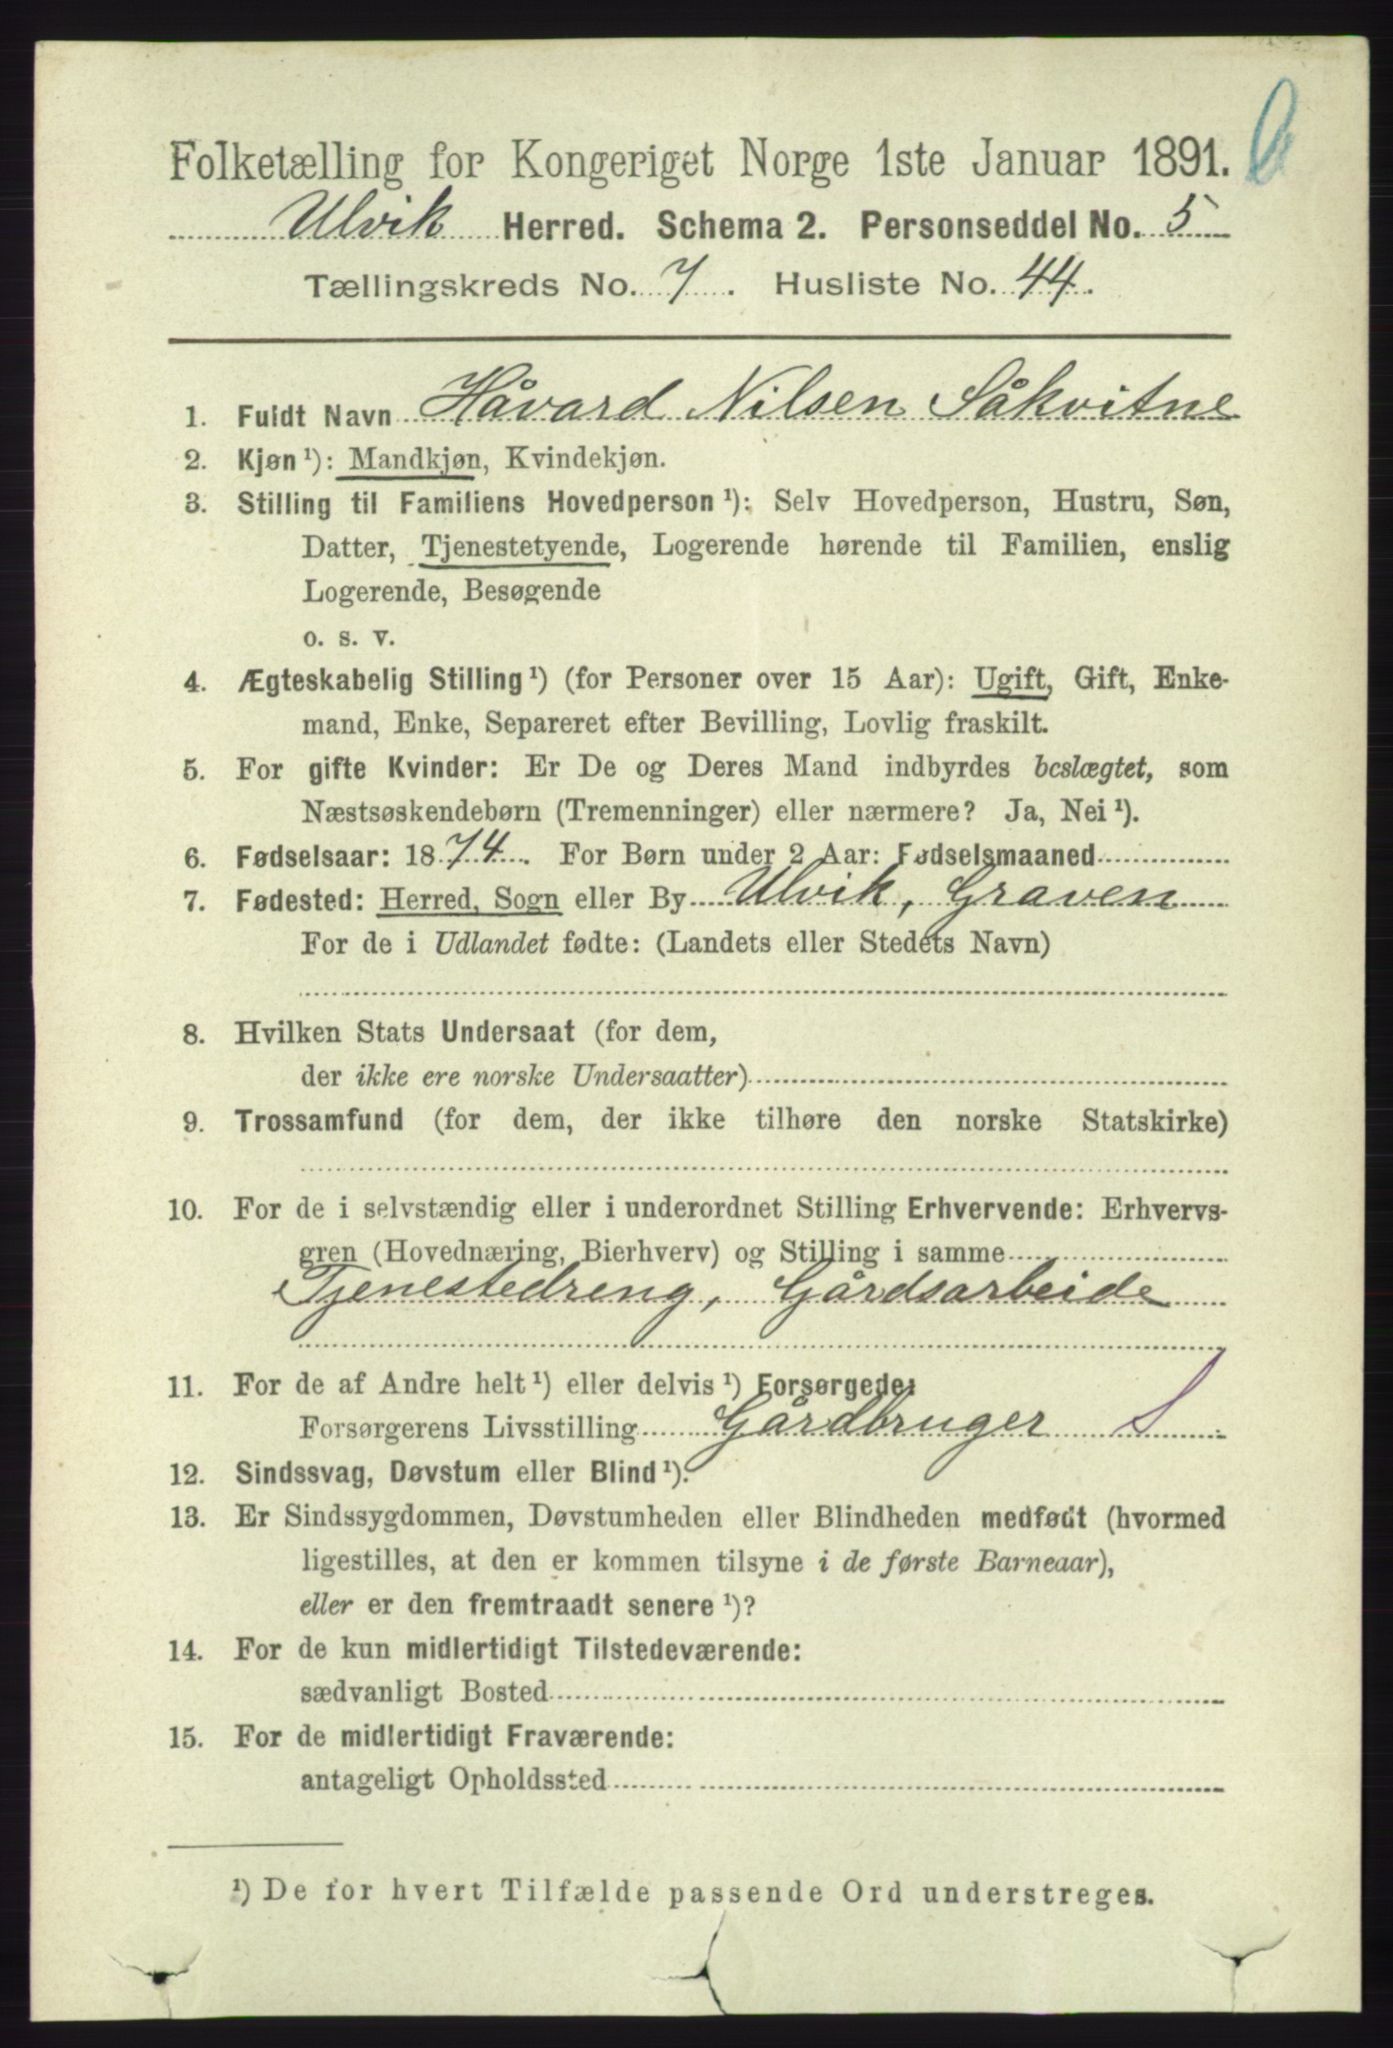 Folketælling for Kongeriget Norge 1ste Januar 1891.
Ulvik Herred. Schema 2. Personseddel No. 5
Tællingskreds No. 7. Husliste No. 44.
1. Fuldt Navn Håvard Nilsen Såkvitne
2. Kjøn ¹): Mandkjøn, Kvindekjøn.
3. Stilling til Familiens Hovedperson ¹): Selv Hovedperson, Hustru, Søn,
Datter, Tjenestetyende, Logerende hørende til Familien, enslig
Logerende, Besøgende
o. s. v.
4. Ægteskabelig Stilling ¹) (for Personer over 15 Aar): Ugift, Gift, Enke-
mand, Enke, Separeret efter Bevilling, Lovlig fraskilt.
5. For gifte Kvinder: Er De og Deres Mand indbyrdes beslægtet, som
Næstsøskendebørn (Tremenninger) eller nærmere? Ja, Nei ¹).
6. Fødselsaar: 1874. For Børn under 2 Aar: Fødselsmaaned
7. Fødested: Herred, Sogn eller By Ulvik, Graven
For de i Udlandet fødte: (Landets eller Stedets Navn)
8. Hvilken Stats Undersaat (for dem,
der ikke ere norske Undersaatter)
9. Trossamfund (for dem, der ikke tilhøre den norske Statskirke)
10. For de i selvstændig eller i underordnet Stilling Erhvervende: Erhvervs-
gren (Hovednæring, Bierhverv) og Stilling i samme
Tjenestedreng, Gårdsarbeide
11. For de af Andre helt ¹) eller delvis ¹) Forsørgede:
Forsørgerens Livsstilling Gårdbruger S
12. Sindssvag, Døvstum eller Blind ¹).
13. Er Sindssygdommen, Døvstumheden eller Blindheden medfødt (hvormed
ligestilles, at den er kommen tilsyne i de første Barneaar),
eller er den fremtraadt senere ¹)?
14. For de kun midlertidigt Tilstedeværende:
sædvanligt Bosted
15. For de midlertidigt Fraværende:
antageligt Opholdssted
¹) De for hvert Tilfælde passende Ord understreges.